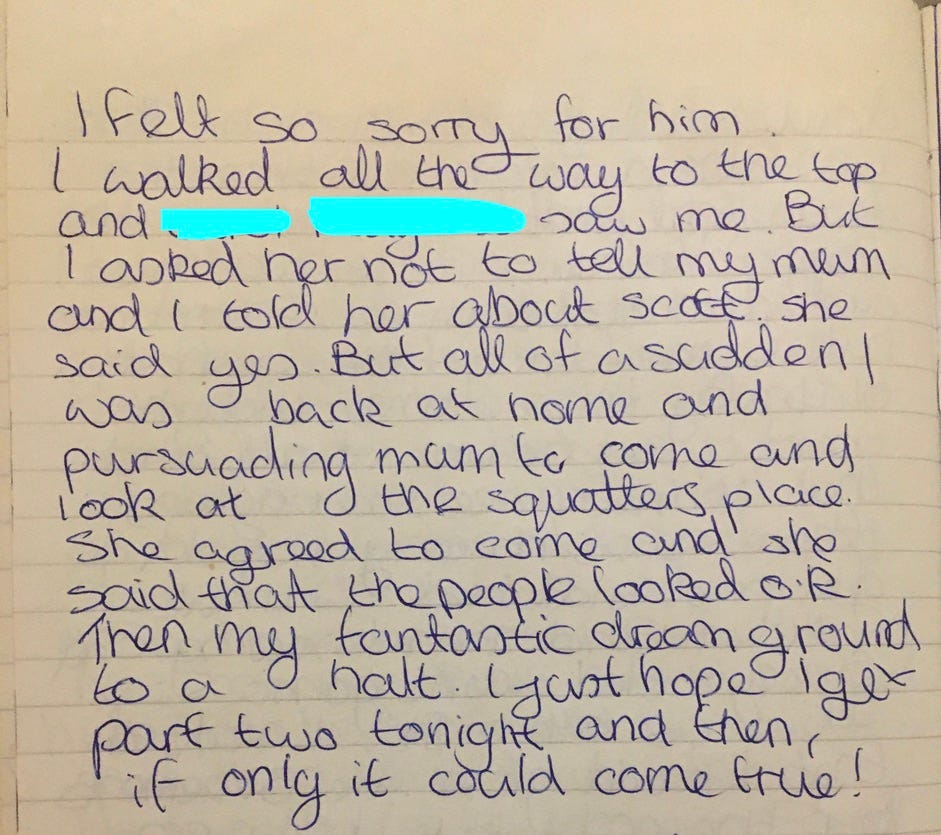 I felt so sorry for him.
I walked all the way to the top
and saw me. But
I asked her not to tell my mum
and I told her about Scott. she
said yes. But all of a sudden I
was back at home and
pursuading mum to come and
look at the squatters place.
She agreed to come and she
said that the people looked O.K.
Then my fantastic dream ground
to a halt. I just hope I get
part two tonight and then,
if only it could come true!